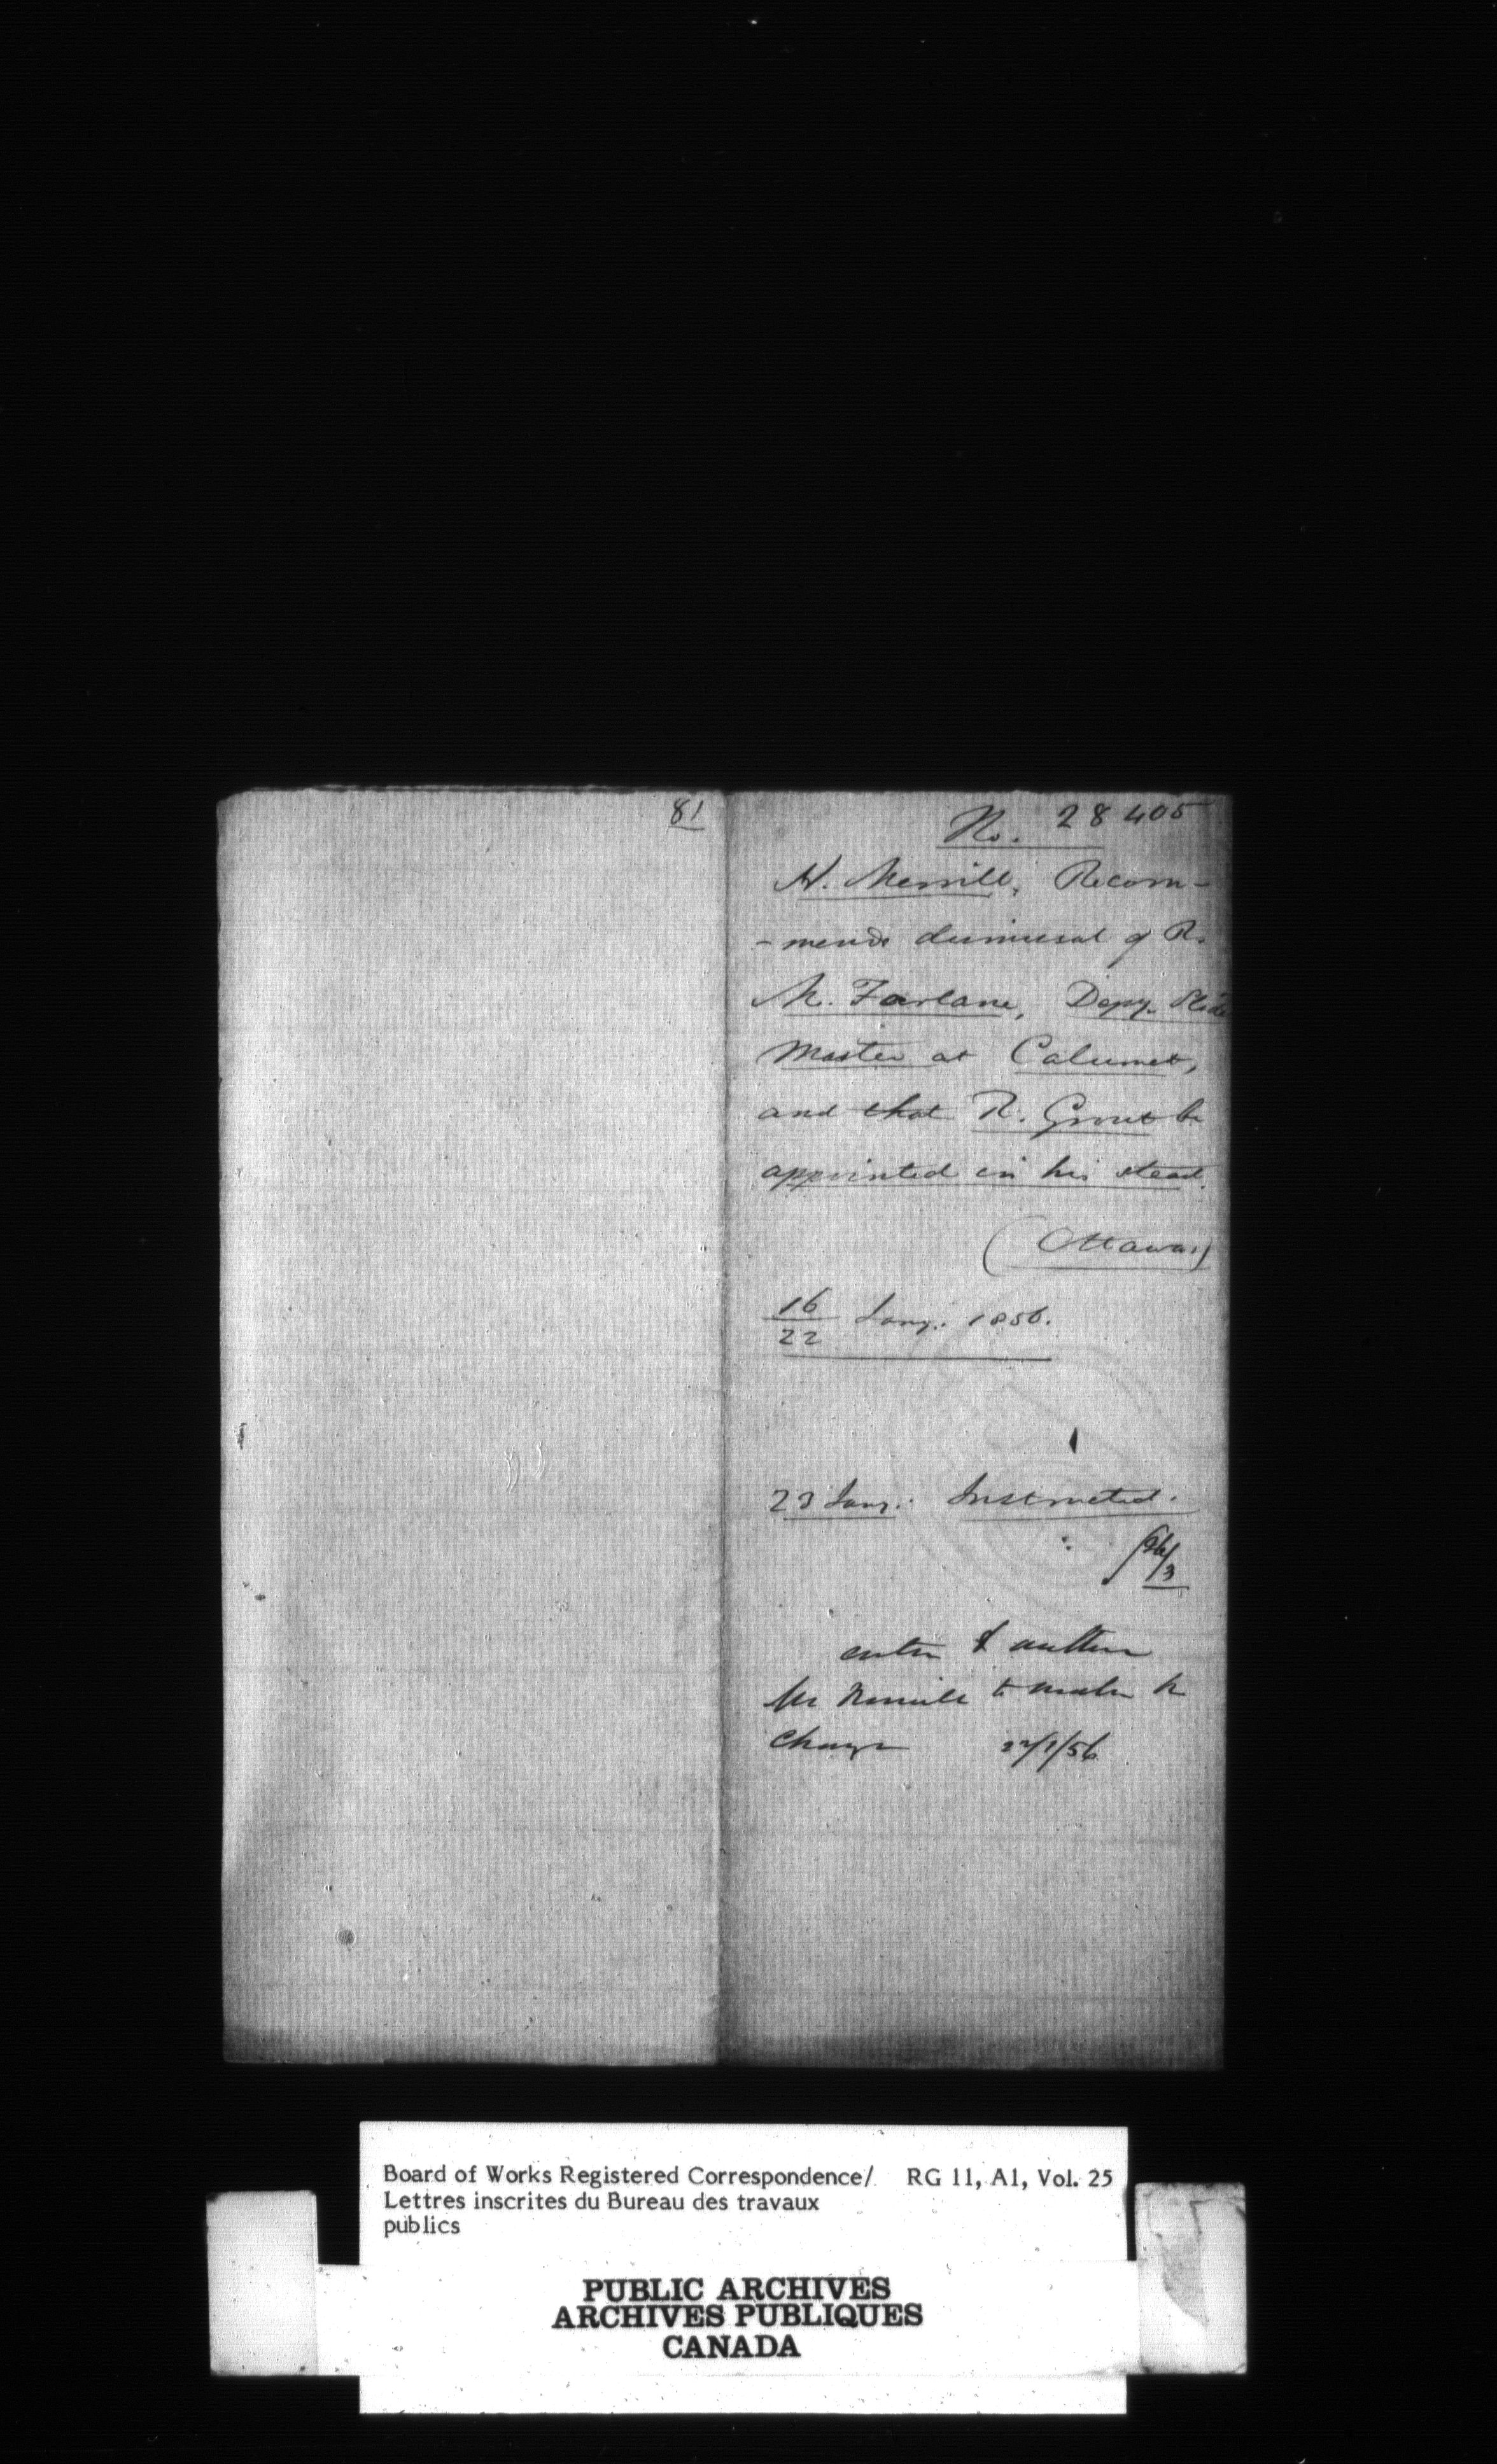 81
No. 28405
H. Merrill, Recom-
-mends dismissal of R.
Mc. Farlane, Depy. Slide
Master at Calumet,
and that R. Grout be
appointed in his stead.
(Ottawa.)
16
22 Jany. 1856.
23 Jany. Instructed.
enter &
Mr Merrill to make the
Change 22/1/56
Board of Works Registered Correspondence/ RG 11, A1, Vol. 25
Lettres inscrites du Bureau des travaux
publics
PUBLIC ARCHIVES
ARCHIVES PUBLIQUES
CANADA